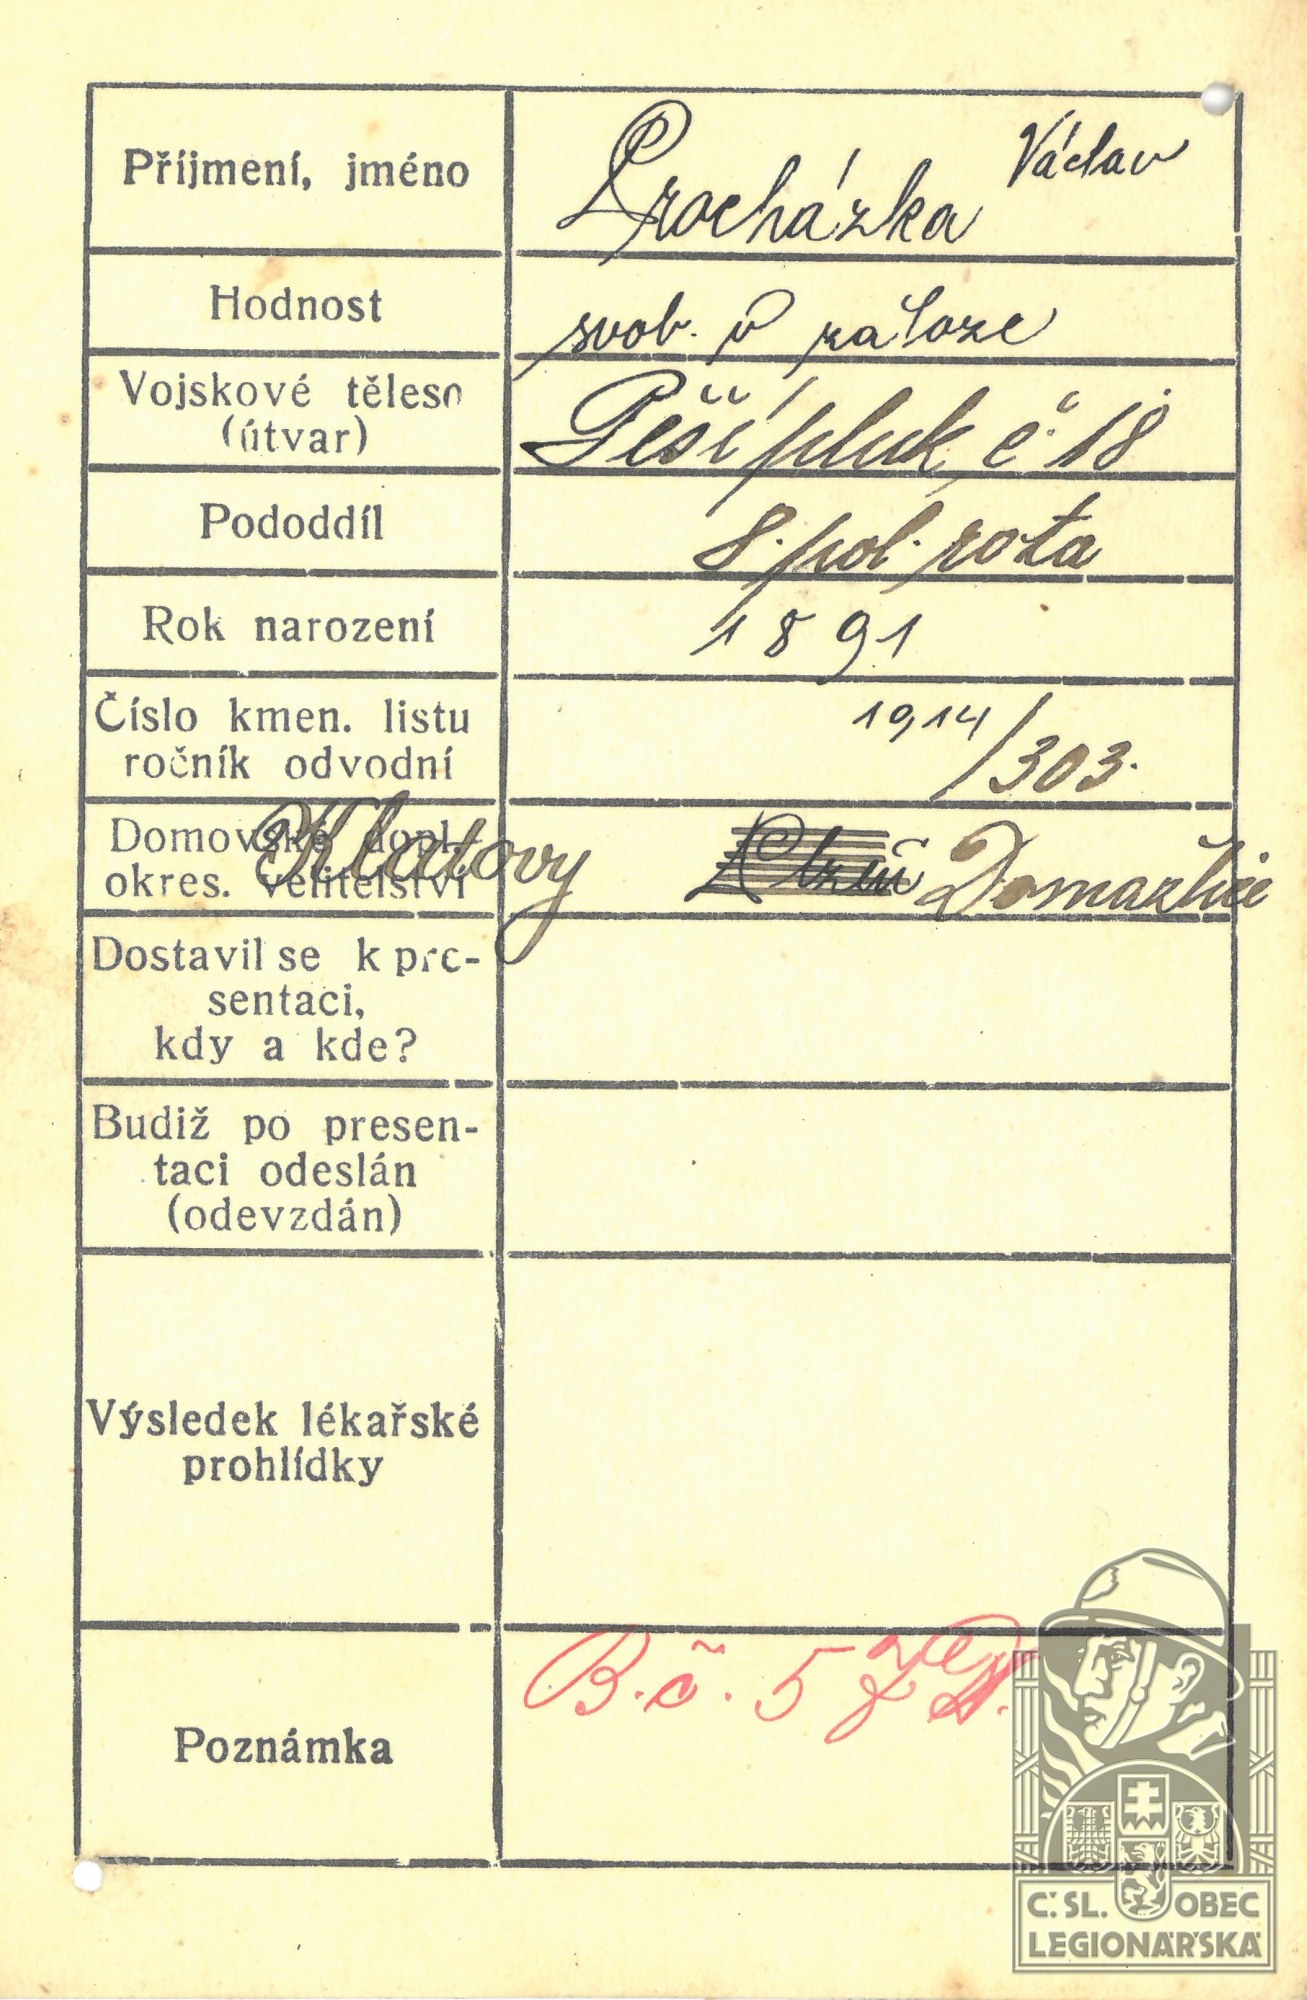 Příjmení, jméno Procházka Václav
Hodnost svob. v záloze
Vojskové těleso
(útvar) Pěší pluk č. 18
Pododdíl 8. pol. rota
Rok narození 1891
Číslo kmen. listu
ročník odvodní 1914/303.
Domovské dopl.
okres. velitelství Klatovy Plzeň Domažlice
Dostavil se k pre-
sentaci,
kdy a kde?
Budiž po presen-
taci odeslán
(odevzdán)
Výsledek lékařské
prohlídky
Poznámka B. č. 5
Č.SL. OBEC
LEGIONÁŘSKÁ